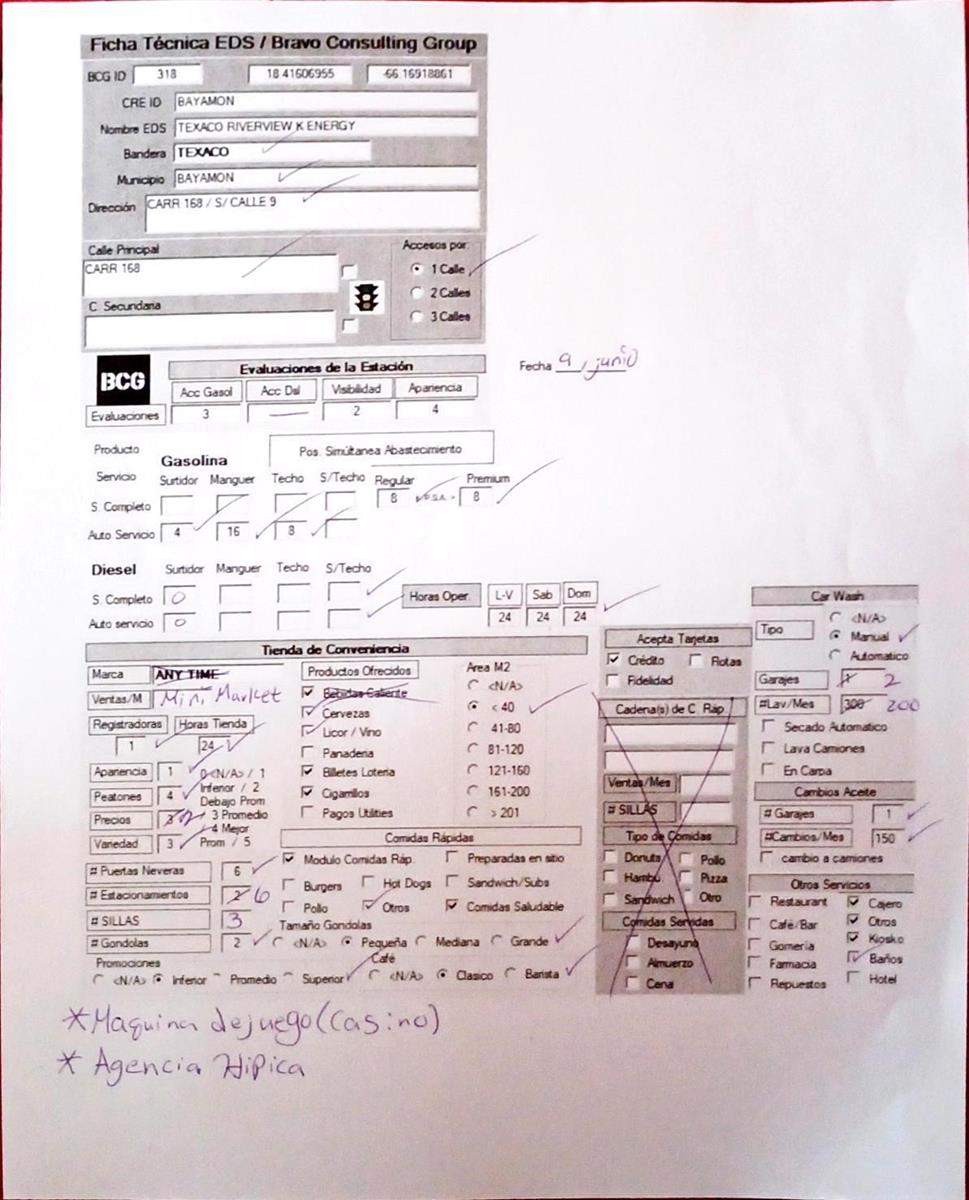 Ficha Técnica EDS / Bravo Consulting Group
BCG ID 318 18.41606955 -66.16918861
CRE ID BAYAMON
Nombre EDS TEXACO RIVERVIEW K ENERGY
Bandera TEXACO
Municipio BAYAMON
Dirección CARR 168 / S/ CALLE 9
Calle Principal
CARR 168
C. Secundaria
Accesos por:
1 Calle
2 Calles
3 Calles
Fecha 9 / junio
BCG
Evaluaciones de la Estación
Acc Gasol Acc Dsl Visibilidad Apariencia
Evaluaciones 3 — 2 4
Producto Pos. Simúltanea Abastecimiento
Gasolina
Servicio Surtidor Manguer Techo S/Techo Regular Premium
S. Completo 8 8
Auto Servicio 4 16 8
Diesel Surtidor Manguer Techo S/Techo
S. Completo 0
Auto servicio 0
Horas Oper. L-V Sab Dom
24 24 24
Tienda de Conveniencia
Marca ANY TIME
Ventas/M Mini Market
Registradoras Horas Tienda
1 24
Apariencia 1 0<N/A> / 1
Peatones 4 Inferior / 2
Debajo Prom
Precios 2 / 3 Promedio
/ 4 Mejor
Variedad 3 Prom / 5
# Puertas Neveras 6
# Estacionamientos 2 6
# SILLAS 3
# Gondolas 2
Productos Ofrecidos
Bebidas Caliente
Cervezas
Licor / Vino
Panaderia
Billetes Loteria
Cigarrillos
Pagos Utilities
Area M2
<N/A>
< 40
41-80
81-120
121-160
161-200
> 201
Comidas Rápidas
Modulo Comidas Ráp. Preparadas en sitio
Burgers Hot Dogs Sandwich/Subs
Pollo Otros Comidas Saludable
Tamaño Gondolas
<N/A> Pequeña Mediana Grande
Promociones
<N/A> Inferior Promedio Superior
Café
<N/A> Clasico Barista
Acepta Tarjetas
Crédito Flotas
Fidelidad
Cadena(s) de C. Ráp.
Ventas/Mes
# SILLAS
Tipo de Comidas
Donuts Pollo
Hambu Pizza
Sandwich Otro
Comidas Servidas
Desayuno
Almuerzo
Cena
Car Wash
Tipo
<N/A>
Manual
Automatico
Garajes 1 2
#Lav/Mes 300 200
Secado Automatico
Lava Camiones
En Carpa
Cambios Aceite
# Garajes 1
#Cambios/Mes 150
cambio a camiones
Otros Servicios
Restaurant Cajero
Café/Bar Otros
Gomeria Kiosko
Farmacia Baños
Repuestos Hotel
*Maquina de juego (Casino)
* Agencia Hipica